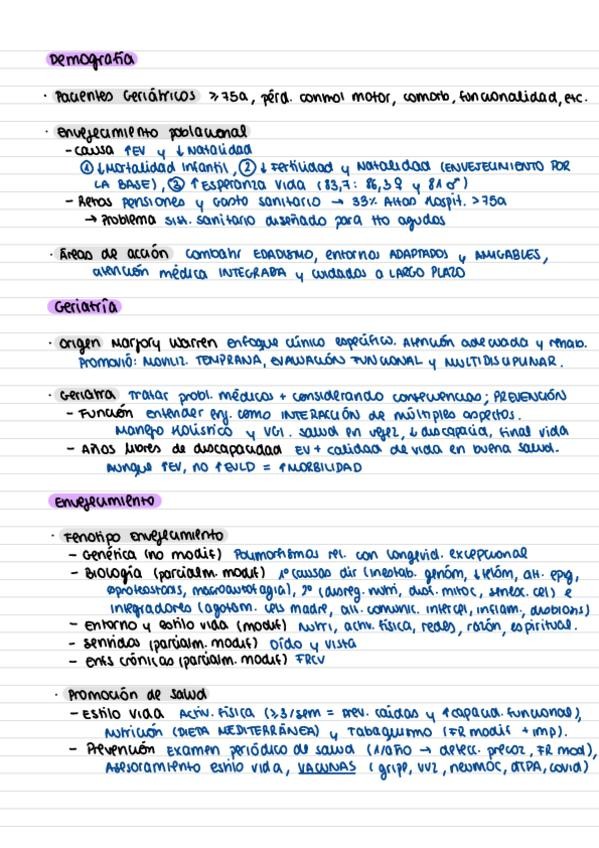 Demografía
· Pacientes Geriátricos ≥75a, pérd. control motor, comorb, funcionalidad, etc.
· Envejecimiento poblacional
- Causa ↑EV y ↓ Natalidad
① ↓ Mortalidad infantil, ② ↓ Fertilidad y Natalidad (ENVEJECIMIENTO POR
LA BASE), ③ ↑ Esperanza vida (83,7: 86,3♀ y 81♂)
- Retos pensiones y Gasto sanitario → 33% Altas Hospit. >75a
→ Problema sist. sanitario diseñado para tto agudos
· Áreas de acción combatir EDADISMO, entornos ADAPTADOS y AMIGABLES,
atención médica INTEGRADA y cuidados a LARGO PLAZO
Geriatría
· Origen Marjory Warren enfoque clínico específico. Atención adecuada y rehab.
Promovió: MOVILIZ. TEMPRANA, EVALUACIÓN FUNCIONAL y MULTIDISCIPLINAR.
· Geriatra Tratar probl. médicos + considerando consecuencias; PREVENCIÓN
- Función entender enf. como INTERACCIÓN de múltiples aspectos.
Manejo Holístico y VGI. salud en vejez, ↓ discapacia, final vida
- Años libres de discapacidad EV + calidad de vida en buena salud.
Aunque ↑EV, no ↑EVLD = ↑MORBILIDAD
Envejecimiento
· Fenotipo envejecimiento
- Genética (no modif) Polimorfismos rel. con longevid. excepcional
- Biología (parcialm. modif) 1º causas dir (inestab. genóm, ↓telóm, alt. epig,
∅proteostasis, macroautofagia), 2º (disreg. nutri, disf. mitoc, senesc. cel) e
integradores (agotam. cels madre, alt. comunic. intercel, inflam, disbiosis)
- Entorno y estilo vida (modif) Nutri, activ. física, redes, razón, espiritual.
- Sentidos (parcialm. modif) Oído y vista
- Enfs crónicas (parcialm. modif) FRCV
· Promoción de salud
- Estilo vida Activ. Física (≥3/sem = prev. caídas y ↑capacid. funcional),
Nutrición (DIETA MEDITERRÁNEA) y Tabaquismo (FR modif + imp).
- Prevención Examen periódico de salud (1/año → detecc. precoz, FR mod),
Asesoramiento estilo vida, VACUNAS (gripe, VVZ, neumoc, dTPA, covid)